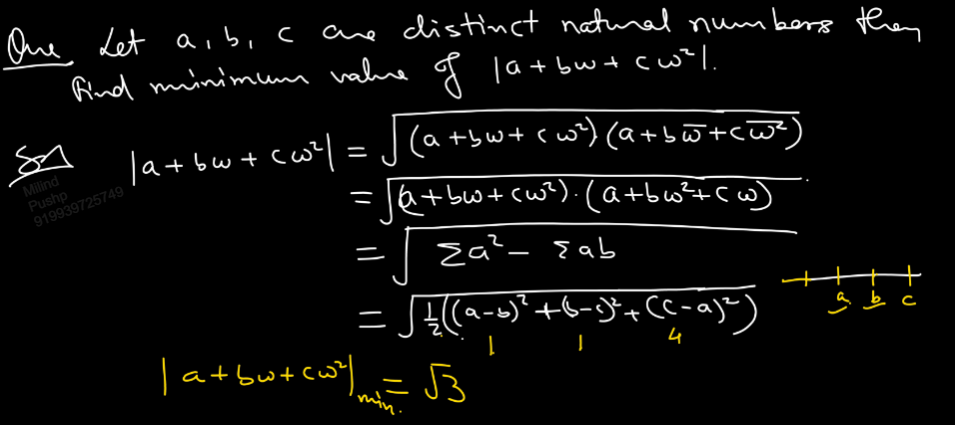 Que Let a, b, c are distinct natural numbers then
find minimum value of |a + bω + cω²|.
Sol |a + bω + cω²| = √(a + bω + cω²) (a + bω̅ + cω̅²)
Milind
Pushp
919939725749
= √(a + bω + cω²) · (a + bω² + cω)
= √Σa² − Σab
= √½((a−b)² + (b−c)² + (c−a)²)
a b c
1 1 4
|a + bω + cω²|min. = √3